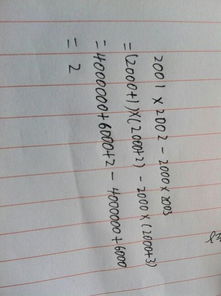 2001×2002-2000×2003
=(2000+1)×(2000+2)-2000×(2000+3)
=4000000+6000+2-4000000+6000
=2